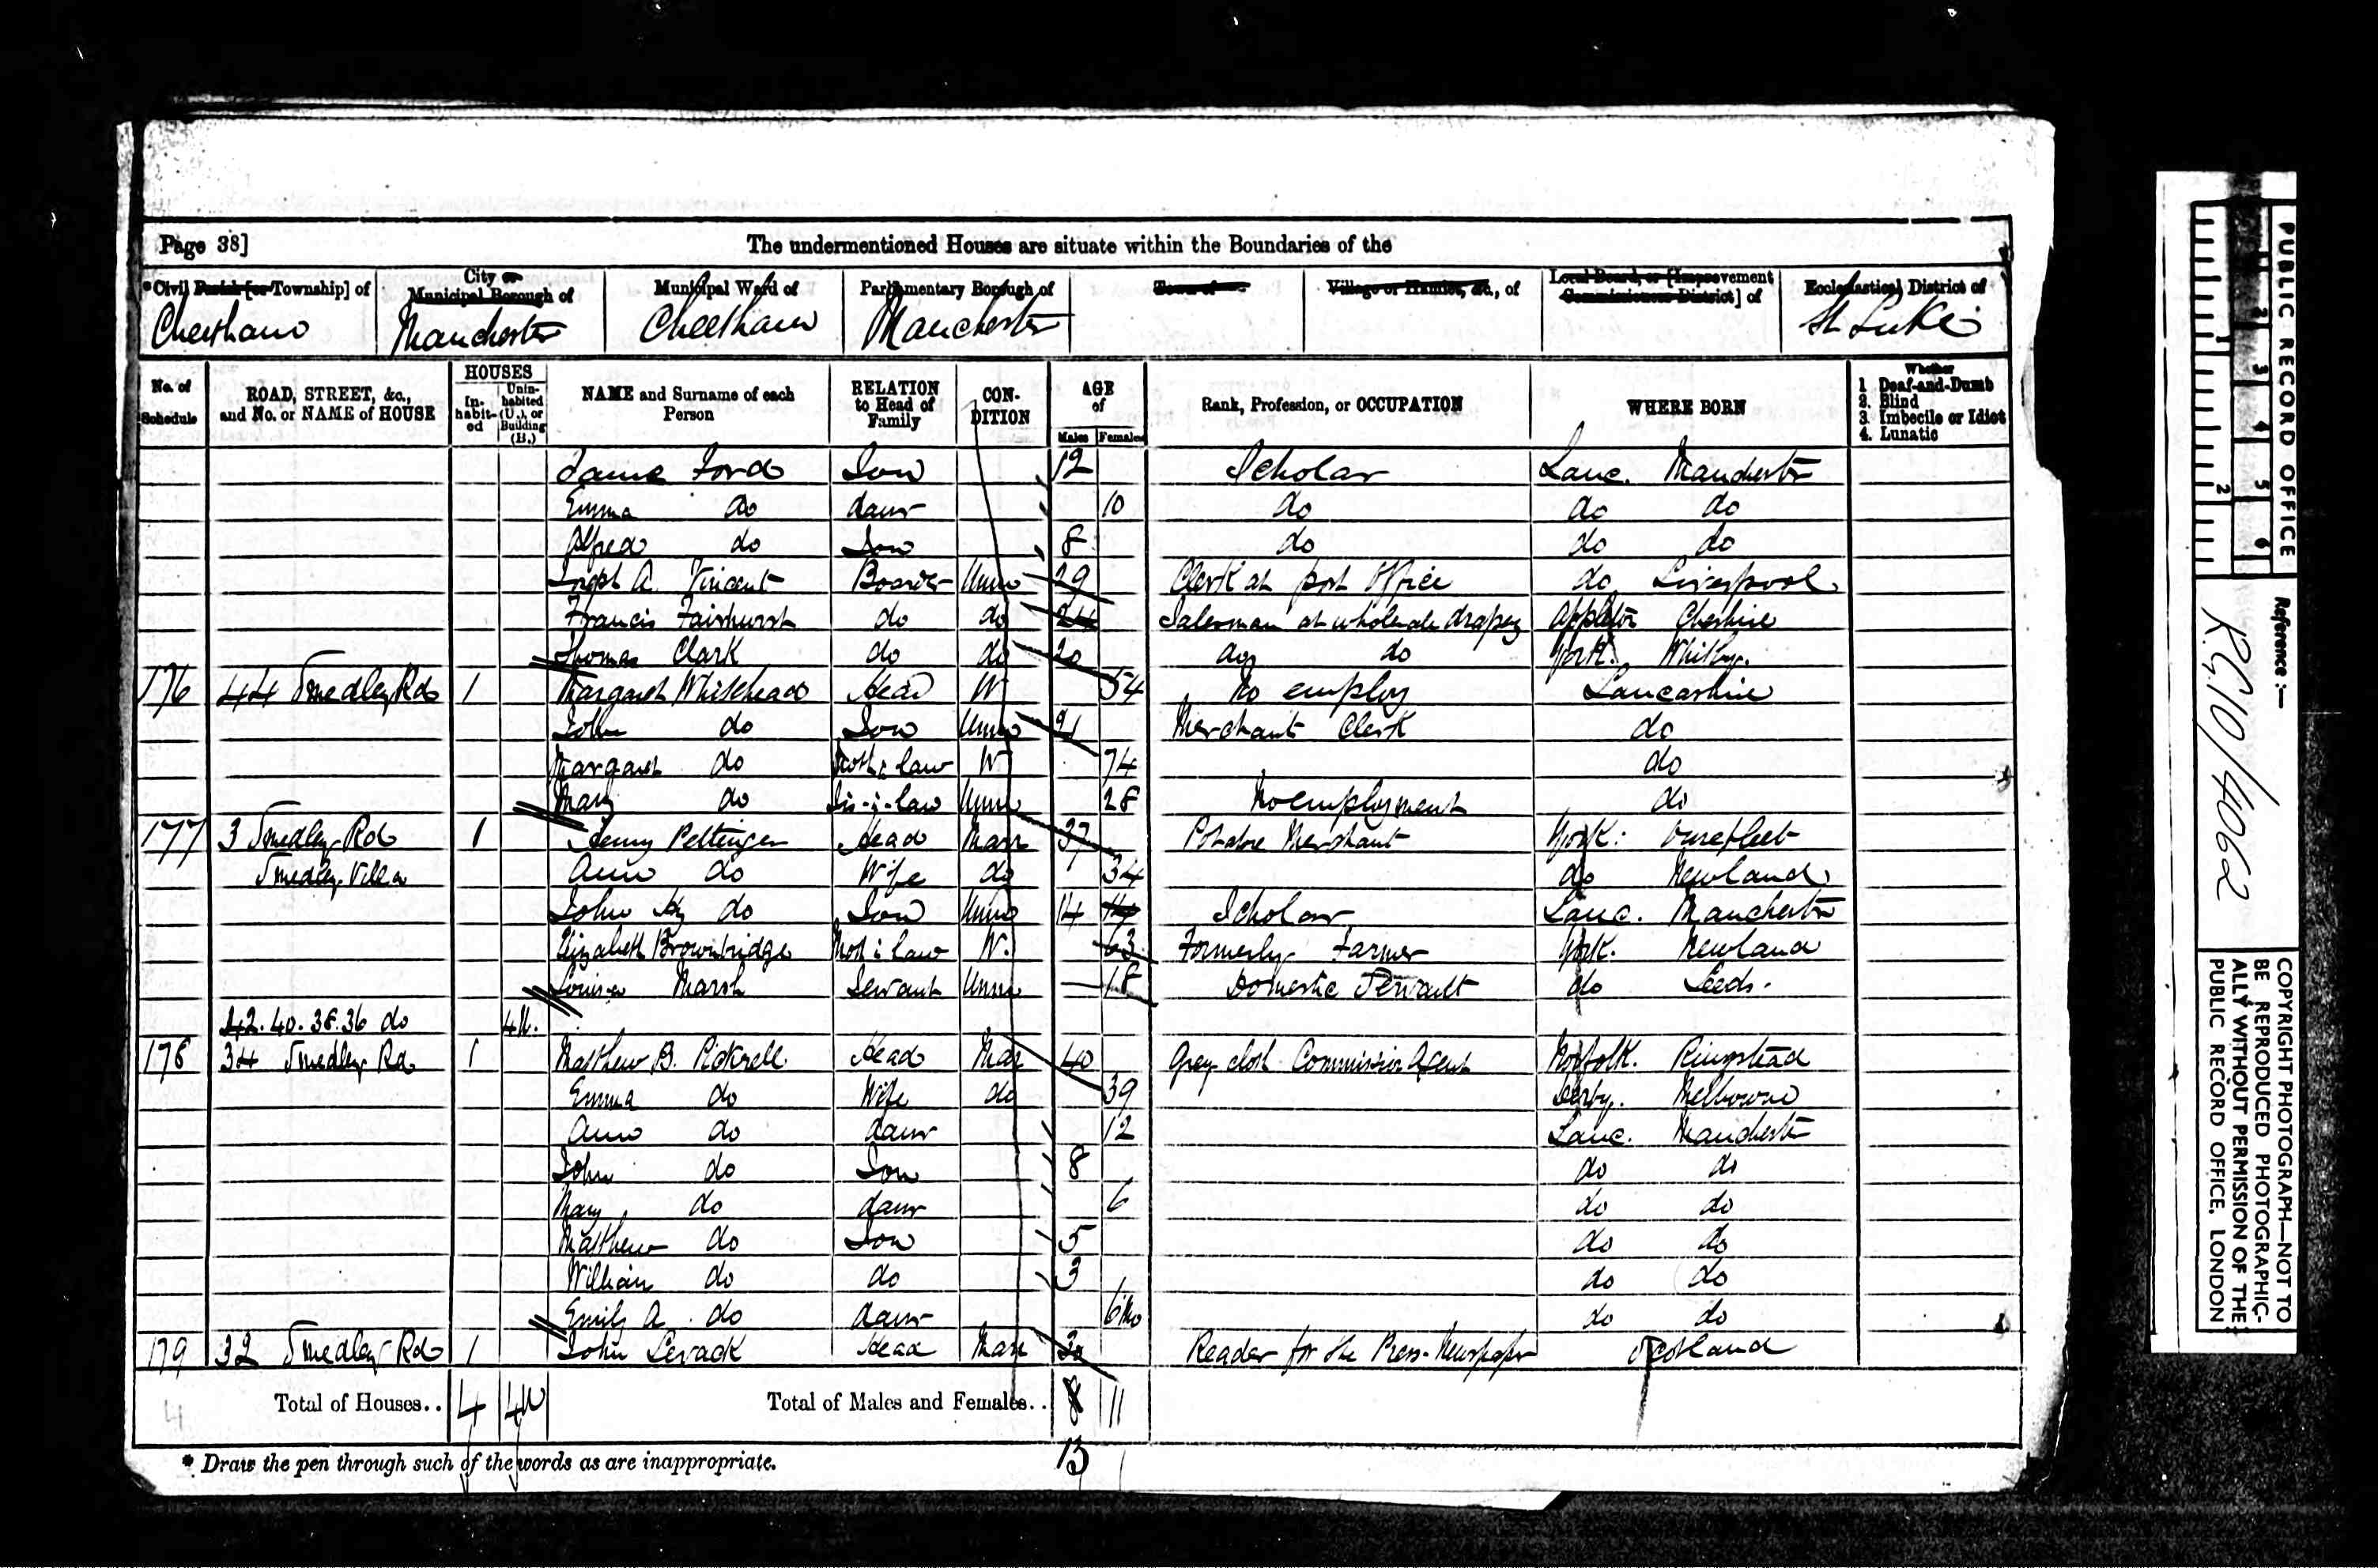 Page 38] The undermentioned Houses are situate within the Boundaries of the
*Civil Parish [or Township] of City or Municipal Borough of Municipal Ward of Parliamentary Borough of Town of Village or Hamlet, &c., of Local Board, or [Improvement Commissioners District] of Ecclesiastical District of
Cheetham Manchester Cheetham Manchester St Luke
No. of Schedule ROAD, STREET, &c., and No. or NAME of HOUSE HOUSES In-habit-ed Unin-habited (U.), or Building (B.) NAME and Surname of each Person RELATION to Head of Family CON-DITION AGE of Males Females Rank, Profession, or OCCUPATION WHERE BORN Whether 1 Deaf-and-Dumb 2. Blind 3. Imbecile or Idiot 4. Lunatic
Ford Son 12 Scholar Lanc. Manchester
Emma do daur 10 do do do
Alfred do Son 8 do do do
Joseph A. Vincent Boarder Unm 29 Clerk at post Office do Liverpool
Francis Fairhurst do do 24 Salesman at wholesale drapery Appleton Cheshire
Thomas Clark do do 20 do do York. Whitby.
176 44 Smedley Rd 1 Margaret Whitehead Head W 54 No employ Lancashire
John do Son Unm 21 Merchant Clerk do
Margaret do Moth i law W 74 do
Mary do Sis-i-law Unm 28 No employment do
177 3 Smedley Rd 1 Henry Head Marr 37 Potatoe Merchant York:
Smedley Villa Ann do Wife do 34 do Newland
John Hy do Son Unm 14 14 Scholar Lanc. Manchester
Elizabeth Brownbridge Moth i law W. 63 Formerly Farmer York. Newland
Louisa Marsh Servant Unm 18 Domestic Servant do Leeds.
42. 40. 38. 36 do 4U.
178 34 Smedley Rd 1 Matthew B. Pickrell Head Mar 40 Grey cloth Commission Agent Norfolk. Ringstead
Emma do Wife do 39 Derby. Melbourne
Ann do daur 12 Lanc. Manchester
John do Son 8 do do
Mary do daur 6 do do
Matthew do Son 5 do do
William do do 3 do do
Emily A. do daur 6 Mo do do
179 32 Smedley Rd 1 John Levack Head Marr Reader for the Press-Newspaper Scotland
4 Total of Houses.. 4 4U Total of Males and Females.. 8 11
* Draw the pen through such of the words as are inappropriate. 13
PUBLIC RECORD OFFICE
1 2 3 4 5 6
1 2
Reference :—
R.G. 10/4062
COPYRIGHT PHOTOGRAPH—NOT TO
BE REPRODUCED PHOTOGRAPHIC-
ALLY WITHOUT PERMISSION OF THE
PUBLIC RECORD OFFICE, LONDON